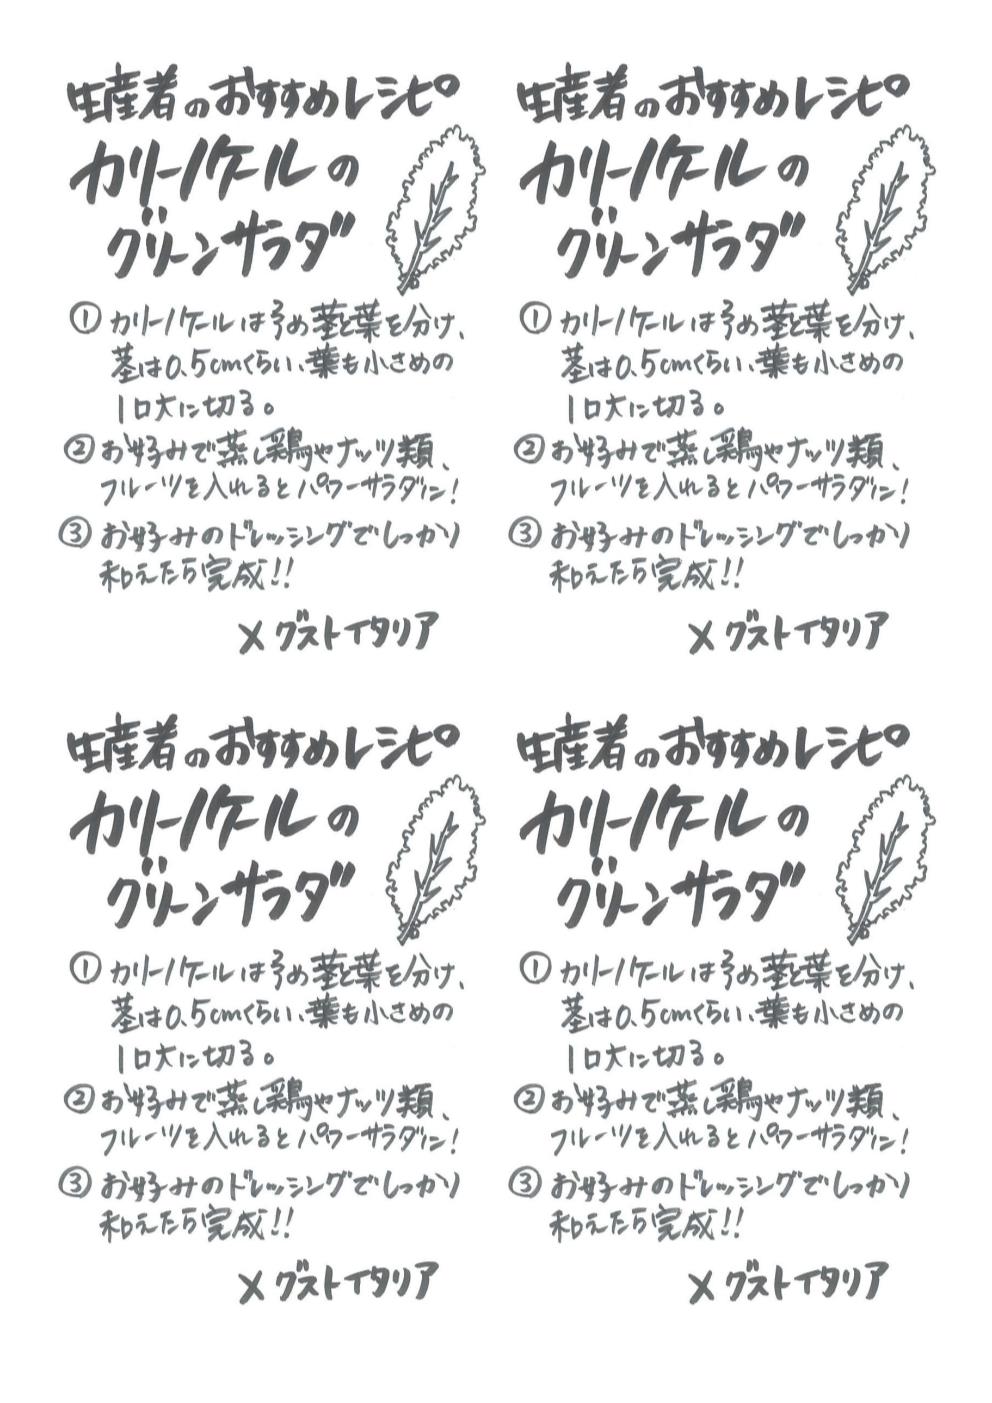 生産者のおすすめレシピ
カリーノケールの
グリーンサラダ
① カリーノケールは予め茎と葉を分け、
茎は0.5cmくらい、葉も小さめの
1口大に切る。
② お好みで蒸し鶏やナッツ類、
フルーツを入れるとパワーサラダに!
③ お好みのドレッシングでしっかり
和えたら完成!!
× グストイタリア
生産者のおすすめレシピ
カリーノケールの
グリーンサラダ
① カリーノケールは予め茎と葉を分け、
茎は0.5cmくらい、葉も小さめの
1口大に切る。
② お好みで蒸し鶏やナッツ類、
フルーツを入れるとパワーサラダに!
③ お好みのドレッシングでしっかり
和えたら完成!!
× グストイタリア
生産者のおすすめレシピ
カリーノケールの
グリーンサラダ
① カリーノケールは予め茎と葉を分け、
茎は0.5cmくらい、葉も小さめの
1口大に切る。
② お好みで蒸し鶏やナッツ類、
フルーツを入れるとパワーサラダに!
③ お好みのドレッシングでしっかり
和えたら完成!!
× グストイタリア
生産者のおすすめレシピ
カリーノケールの
グリーンサラダ
① カリーノケールは予め茎と葉を分け、
茎は0.5cmくらい、葉も小さめの
1口大に切る。
② お好みで蒸し鶏やナッツ類、
フルーツを入れるとパワーサラダに!
③ お好みのドレッシングでしっかり
和えたら完成!!
× グストイタリア